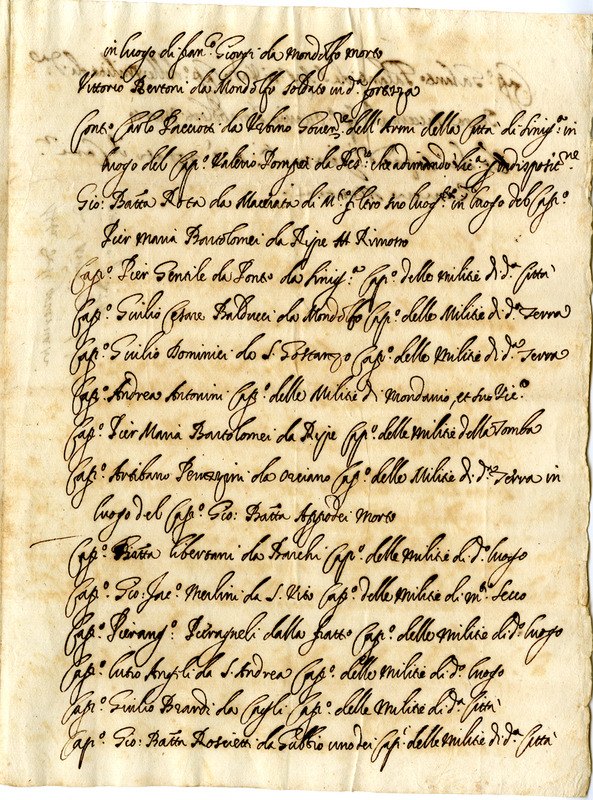 in luogo di fran.co Giorgi da Mondolfo morto
Vittorio Bertoni da Mondolfo soldato in d.a fortezza
Conte Carlo Pacciotti da Urbino Gover.re dell'Armi della Città di Sinig.a in
luogo del Cap.o Valerio Pompei da Pes.o che adimandò lic.a
Gio: Batta Rota da Macerata di M.te suo luog.te in luogo del Cap.o
Pier Maria Bartolomei da Ripe
Cap.o Pier Gentile da Ponto da Sinig.a Cap.o delle Militie di d.a Città
Cap.o Giulio Cesare Balducci da Mondolfo Cap.o delle Militie di d.a Terra
Cap.o Giulio Dominici da S. Gostanzo Cap.o delle Militie di d.a Terra
Cap.o Andrea Antonini Cap.o delle Militie di Mondavio, et suo Vic.o
Cap.o Pier Maria Bartolomei da Ripe Cap.o delle Militie della Tomba
Cap.o Artibano Peruzzini da Orciano Cap.o delle Militie di d.a Terra in
luogo del Cap.o Gio: Batta Morto
Cap.o Batta Libertani da Barchi Cap.o delle Militie di d.o luogo
Cap.o Gio: Jac.o Merlini da S. Vito Cap.o delle Militie di M.te Secco
Cap.o Pierang.o Pieragneli dalla fratta Cap.o delle Militie di d.o luogo
Cap.o Lutio Angeli da S. Andrea Cap.o delle Militie di d.o luogo
Cap.o Giulio Berardi da Cagli Cap.o delle Militie di d.a Città
Cap.o Gio: Batta Roscietti da Gubbio uno dei Cap.i delle Militie di d.a Città